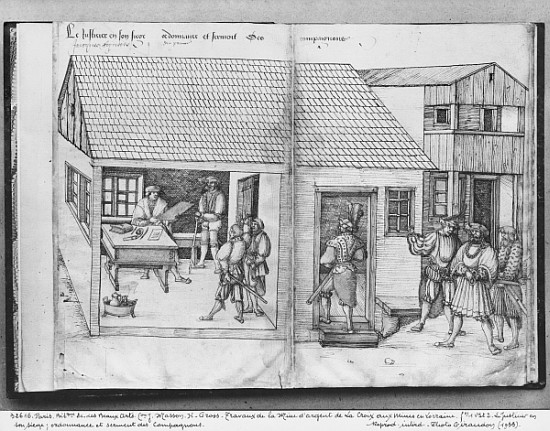 Le Justicier en son siege ordonnance et serment Des compaignons
B2616. Paris. Bibl. des Beaux Arts. J. Masson. H. Gross. Travaux de la Mine d'argent de la Croix aux Mines en Lorraine. Le Justicier en
son siege ; ordonnance et serment des Compagnons. Reprod. interd. Photo Giraudon